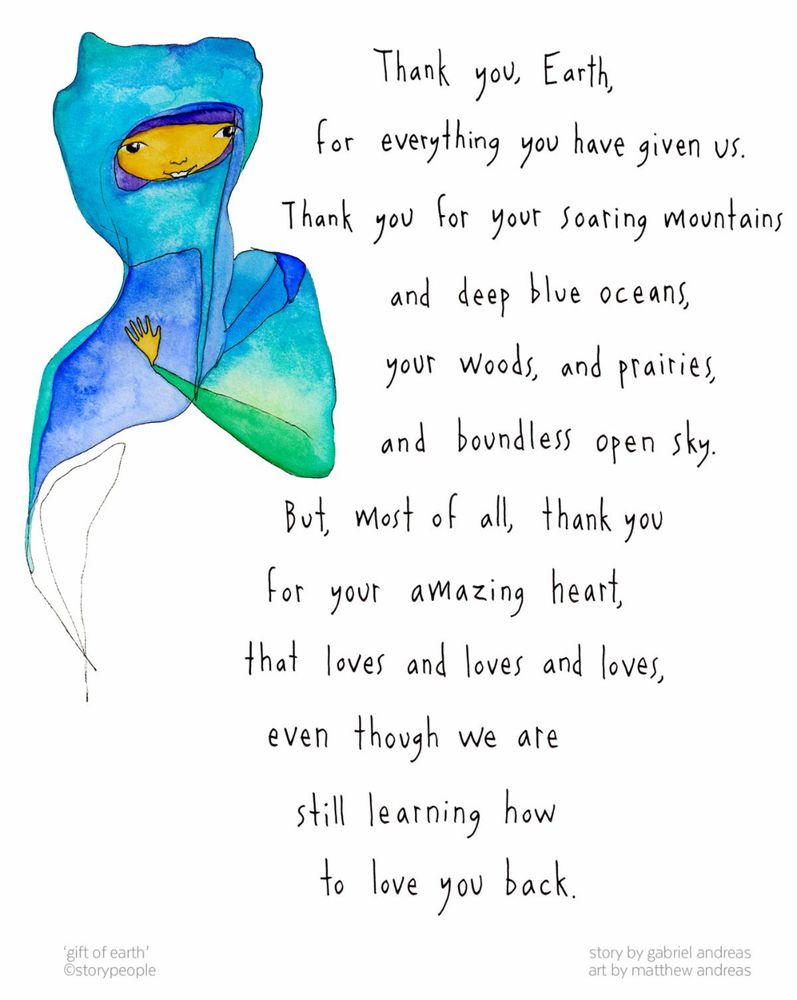 Thank you, Earth,
for everything you have given us.
Thank you for your soaring mountains
and deep blue oceans,
your woods, and prairies,
and boundless open sky.
But, most of all, thank you
for your amazing heart,
that loves and loves and loves,
even though we are
still learning how
to love you back.
'gift of earth'
©storypeople
story by gabriel andreas
art by matthew andreas